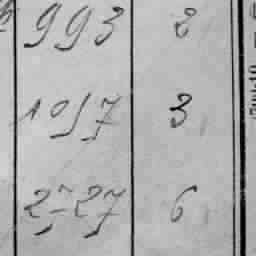 993 2
1017 3
2727 6